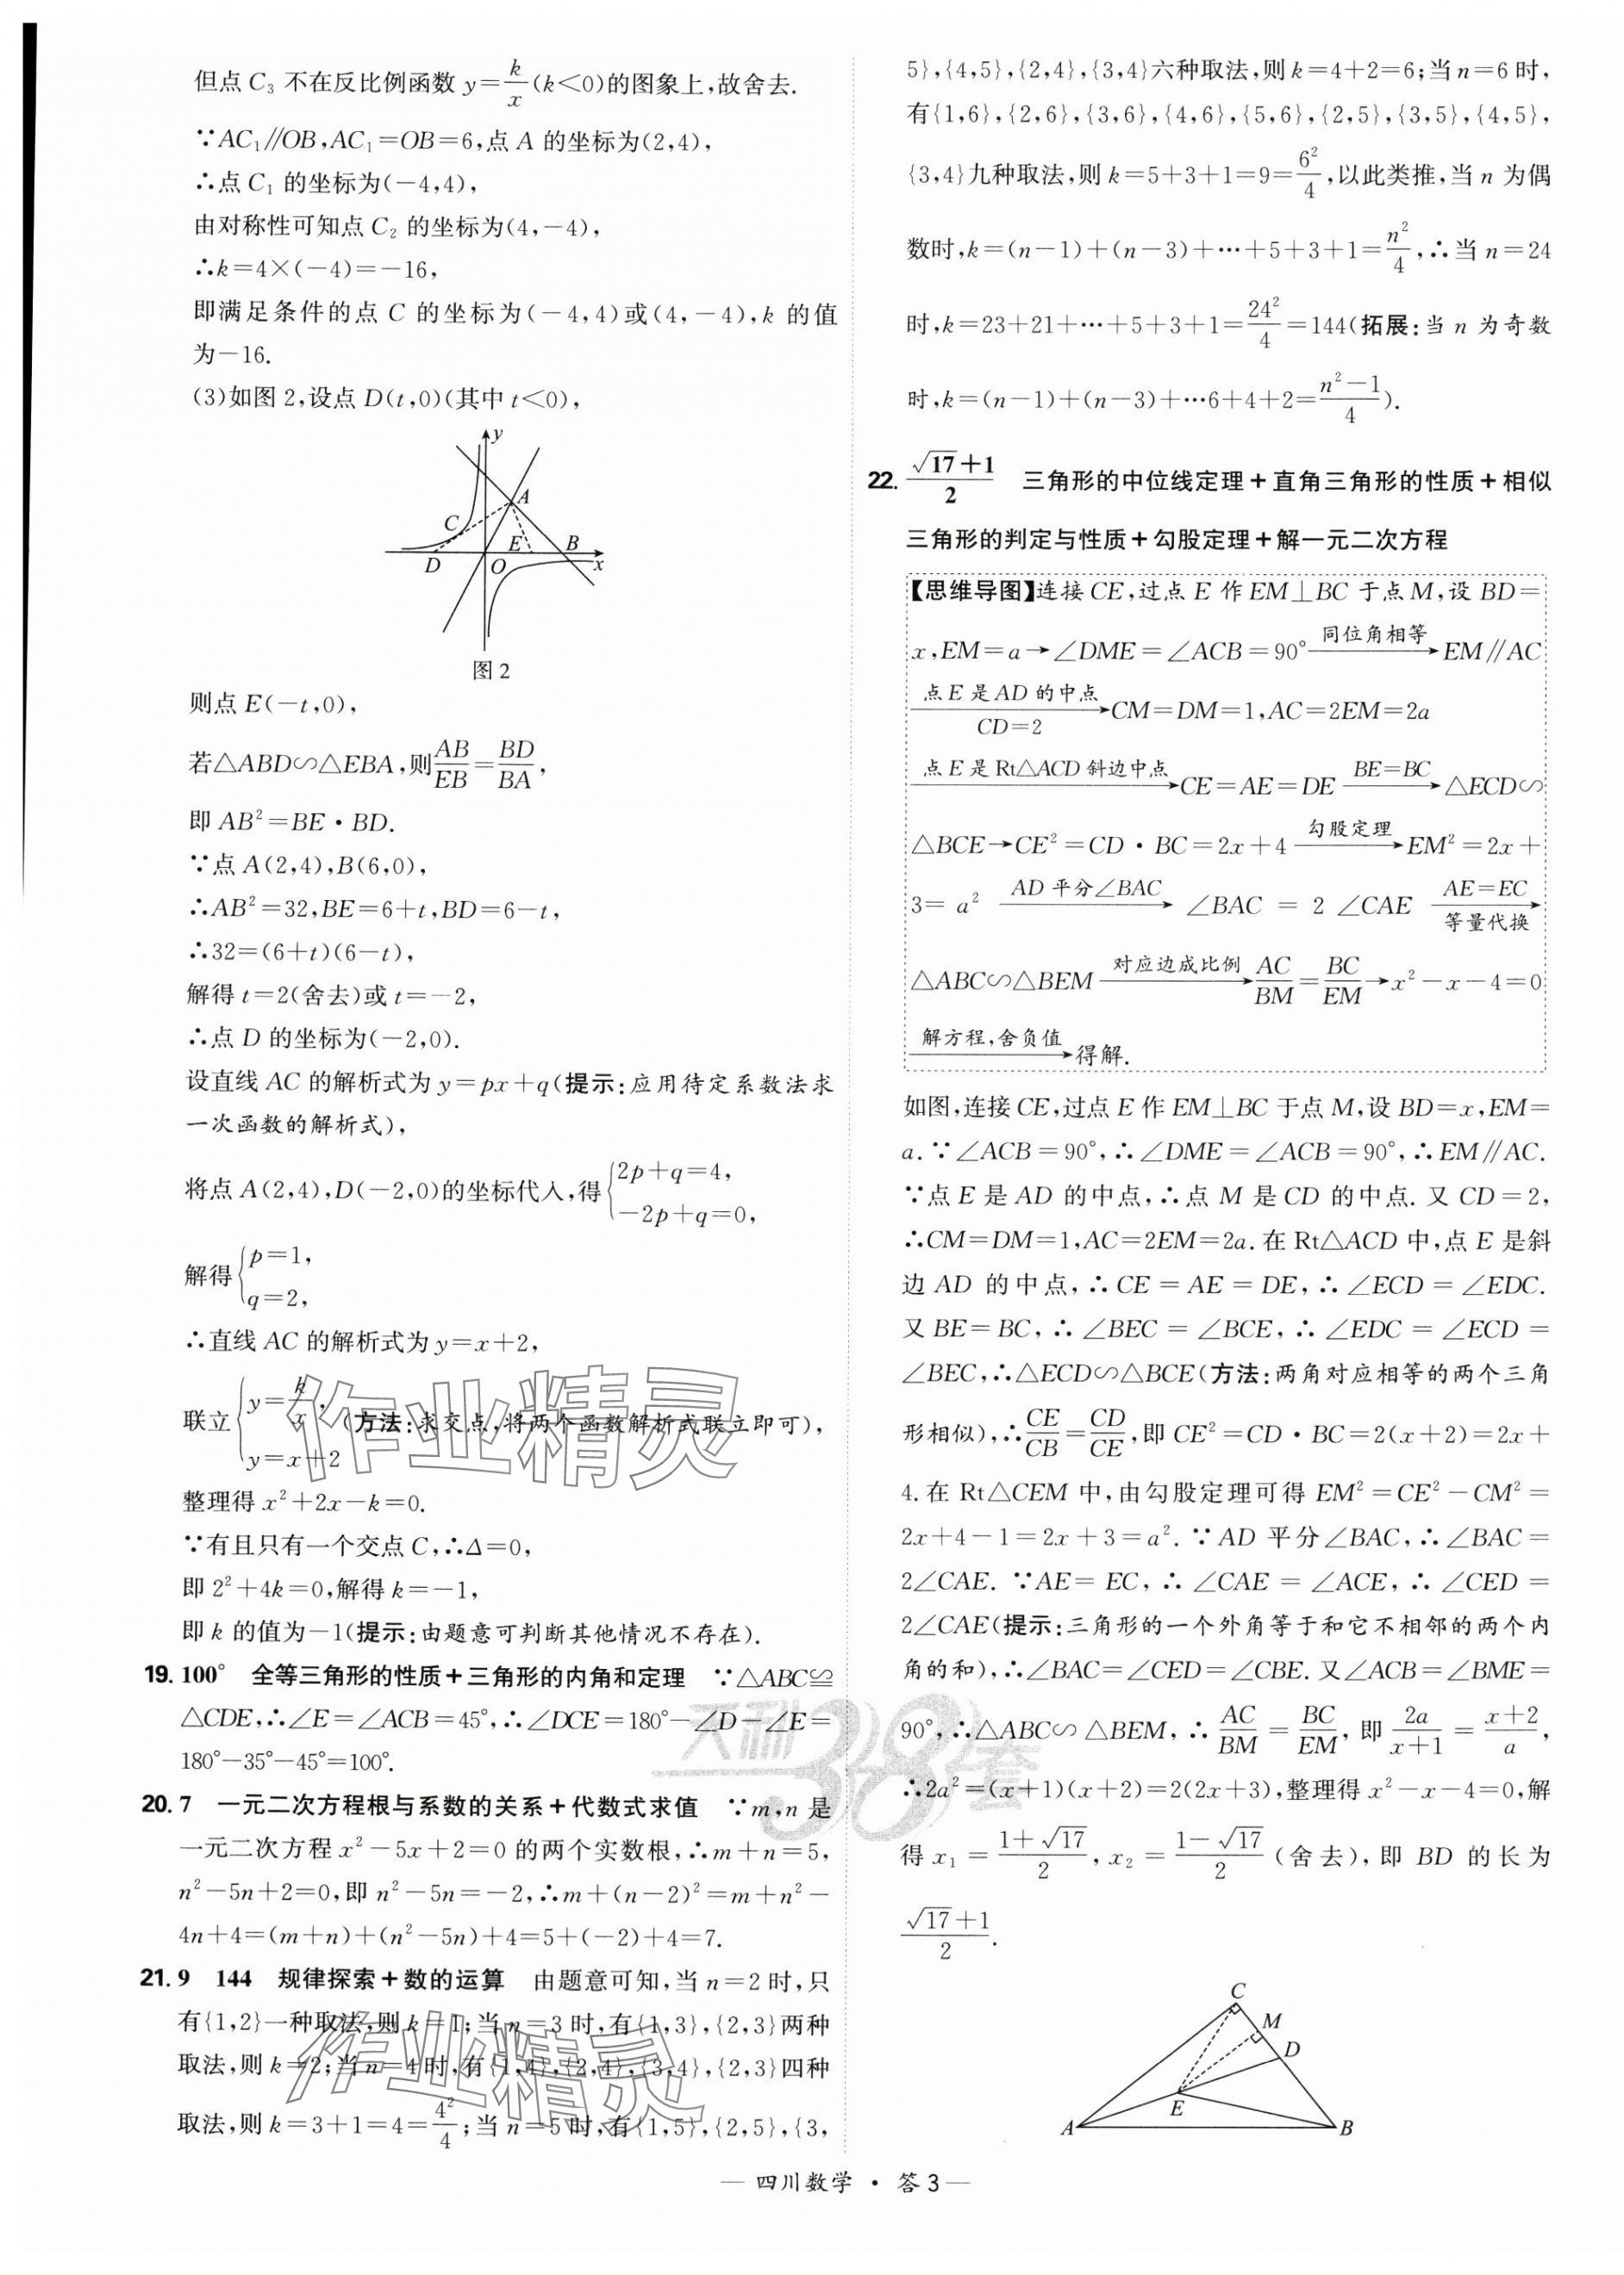 但点 C₃ 不在反比例函数 y=k/x(k<0)的图象上,故舍去.
∵AC₁∥OB,AC₁=OB=6,点 A 的坐标为(2,4),
∴点 C₁ 的坐标为(-4,4),
由对称性可知点 C₂ 的坐标为(4,-4),
∴k=4×(-4)=-16,
即满足条件的点 C 的坐标为(-4,4)或(4,-4),k 的值
为-16.
(3)如图 2,设点 D(t,0)(其中 t<0),
y
A
C
E
B
D
O
x
图 2
则点 E(-t,0),
若△ABD∽△EBA,则AB/EB=BD/BA,
即 AB²=BE·BD.
∵点 A(2,4),B(6,0),
∴AB²=32,BE=6+t,BD=6-t,
∴32=(6+t)(6-t),
解得 t=2(舍去)或 t=-2,
∴点 D 的坐标为(-2,0).
设直线 AC 的解析式为 y=px+q(提示:应用待定系数法求
一次函数的解析式),
将点 A(2,4),D(-2,0)的坐标代入,得{2p+q=4,
-2p+q=0,
解得{p=1,
q=2,
∴直线 AC 的解析式为 y=x+2,
联立{y=k/x,
y=x+2
(方法:求交点,将两个函数解析式联立即可),
整理得 x²+2x-k=0.
∵有且只有一个交点 C,∴Δ=0,
即 2²+4k=0,解得 k=-1,
即 k 的值为-1(提示:由题意可判断其他情况不存在).
19. 100° 全等三角形的性质+三角形的内角和定理 ∵△ABC≌
△CDE,∴∠E=∠ACB=45°,∴∠DCE=180°-∠D-∠E=
180°-35°-45°=100°.
20. 7 一元二次方程根与系数的关系+代数式求值 ∵m,n 是
一元二次方程 x²-5x+2=0 的两个实数根,∴m+n=5,
n²-5n+2=0,即 n²-5n=-2,∴m+(n-2)²=m+n²-
4n+4=(m+n)+(n²-5n)+4=5+(-2)+4=7.
21. 9 144 规律探索+数的运算 由题意可知,当 n=2 时,只
有{1,2}一种取法,则 k=1;当 n=3 时,有{1,3},{2,3}两种
取法,则 k=2;当 n=4 时,有{1,4},{2,4},{3,4},{2,3}四种
取法,则 k=3+1=4=4²/4;当 n=5 时,有{1,5},{2,5},{3,
5},{4,5},{2,4},{3,4}六种取法,则 k=4+2=6;当 n=6 时,
有{1,6},{2,6},{3,6},{4,6},{5,6},{2,5},{3,5},{4,5},
{3,4}九种取法,则 k=5+3+1=9=6²/4,以此类推,当 n 为偶
数时,k=(n-1)+(n-3)+…+5+3+1=n²/4,∴当 n=24
时,k=23+21+…+5+3+1=24²/4=144(拓展:当 n 为奇数
时,k=(n-1)+(n-3)+…6+4+2=(n²-1)/4).
22. (√17+1)/2 三角形的中位线定理+直角三角形的性质+相似
三角形的判定与性质+勾股定理+解一元二次方程
【思维导图】连接 CE,过点 E 作 EM⊥BC 于点 M,设 BD=
x,EM=a→∠DME=∠ACB=90° 同位角相等→EM∥AC
点 E 是 AD 的中点 CD=2→CM=DM=1,AC=2EM=2a
点 E 是 Rt△ACD 斜边中点→CE=AE=DE BE=BC→△ECD∽
△BCE→CE²=CD·BC=2x+4 勾股定理→EM²=2x+
3=a² AD 平分∠BAC→∠BAC=2∠CAE AE=EC 等量代换→
△ABC∽△BEM 对应边成比例→AC/BM=BC/EM→x²-x-4=0
解方程,舍负值→得解.
如图,连接 CE,过点 E 作 EM⊥BC 于点 M,设 BD=x,EM=
a.∵∠ACB=90°,∴∠DME=∠ACB=90°,∴EM∥AC.
∵点 E 是 AD 的中点,∴点 M 是 CD 的中点.又 CD=2,
∴CM=DM=1,AC=2EM=2a.在 Rt△ACD 中,点 E 是斜
边 AD 的中点,∴CE=AE=DE,∴∠ECD=∠EDC.
又 BE=BC,∴∠BEC=∠BCE,∴∠EDC=∠ECD=
∠BEC,∴△ECD∽△BCE(方法:两角对应相等的两个三角
形相似),∴CE/CB=CD/CE,即 CE²=CD·BC=2(x+2)=2x+
4.在 Rt△CEM 中,由勾股定理可得 EM²=CE²-CM²=
2x+4-1=2x+3=a².∵AD 平分∠BAC,∴∠BAC=
2∠CAE.∵AE=EC,∴∠CAE=∠ACE,∴∠CED=
2∠CAE(提示:三角形的一个外角等于和它不相邻的两个内
角的和),∴∠BAC=∠CED=∠CBE.又∠ACB=∠BME=
90°,∴△ABC∽△BEM,∴AC/BM=BC/EM,即 2a/(x+1)=(x+2)/a,
∴2a²=(x+1)(x+2)=2(2x+3),整理得 x²-x-4=0,解
得 x₁=(1+√17)/2,x₂=(1-√17)/2(舍去),即 BD 的长为
(√17+1)/2.
C
M
D
E
A
B
作业精灵
天利38套
作业精灵
— 四川数学·答 3 —